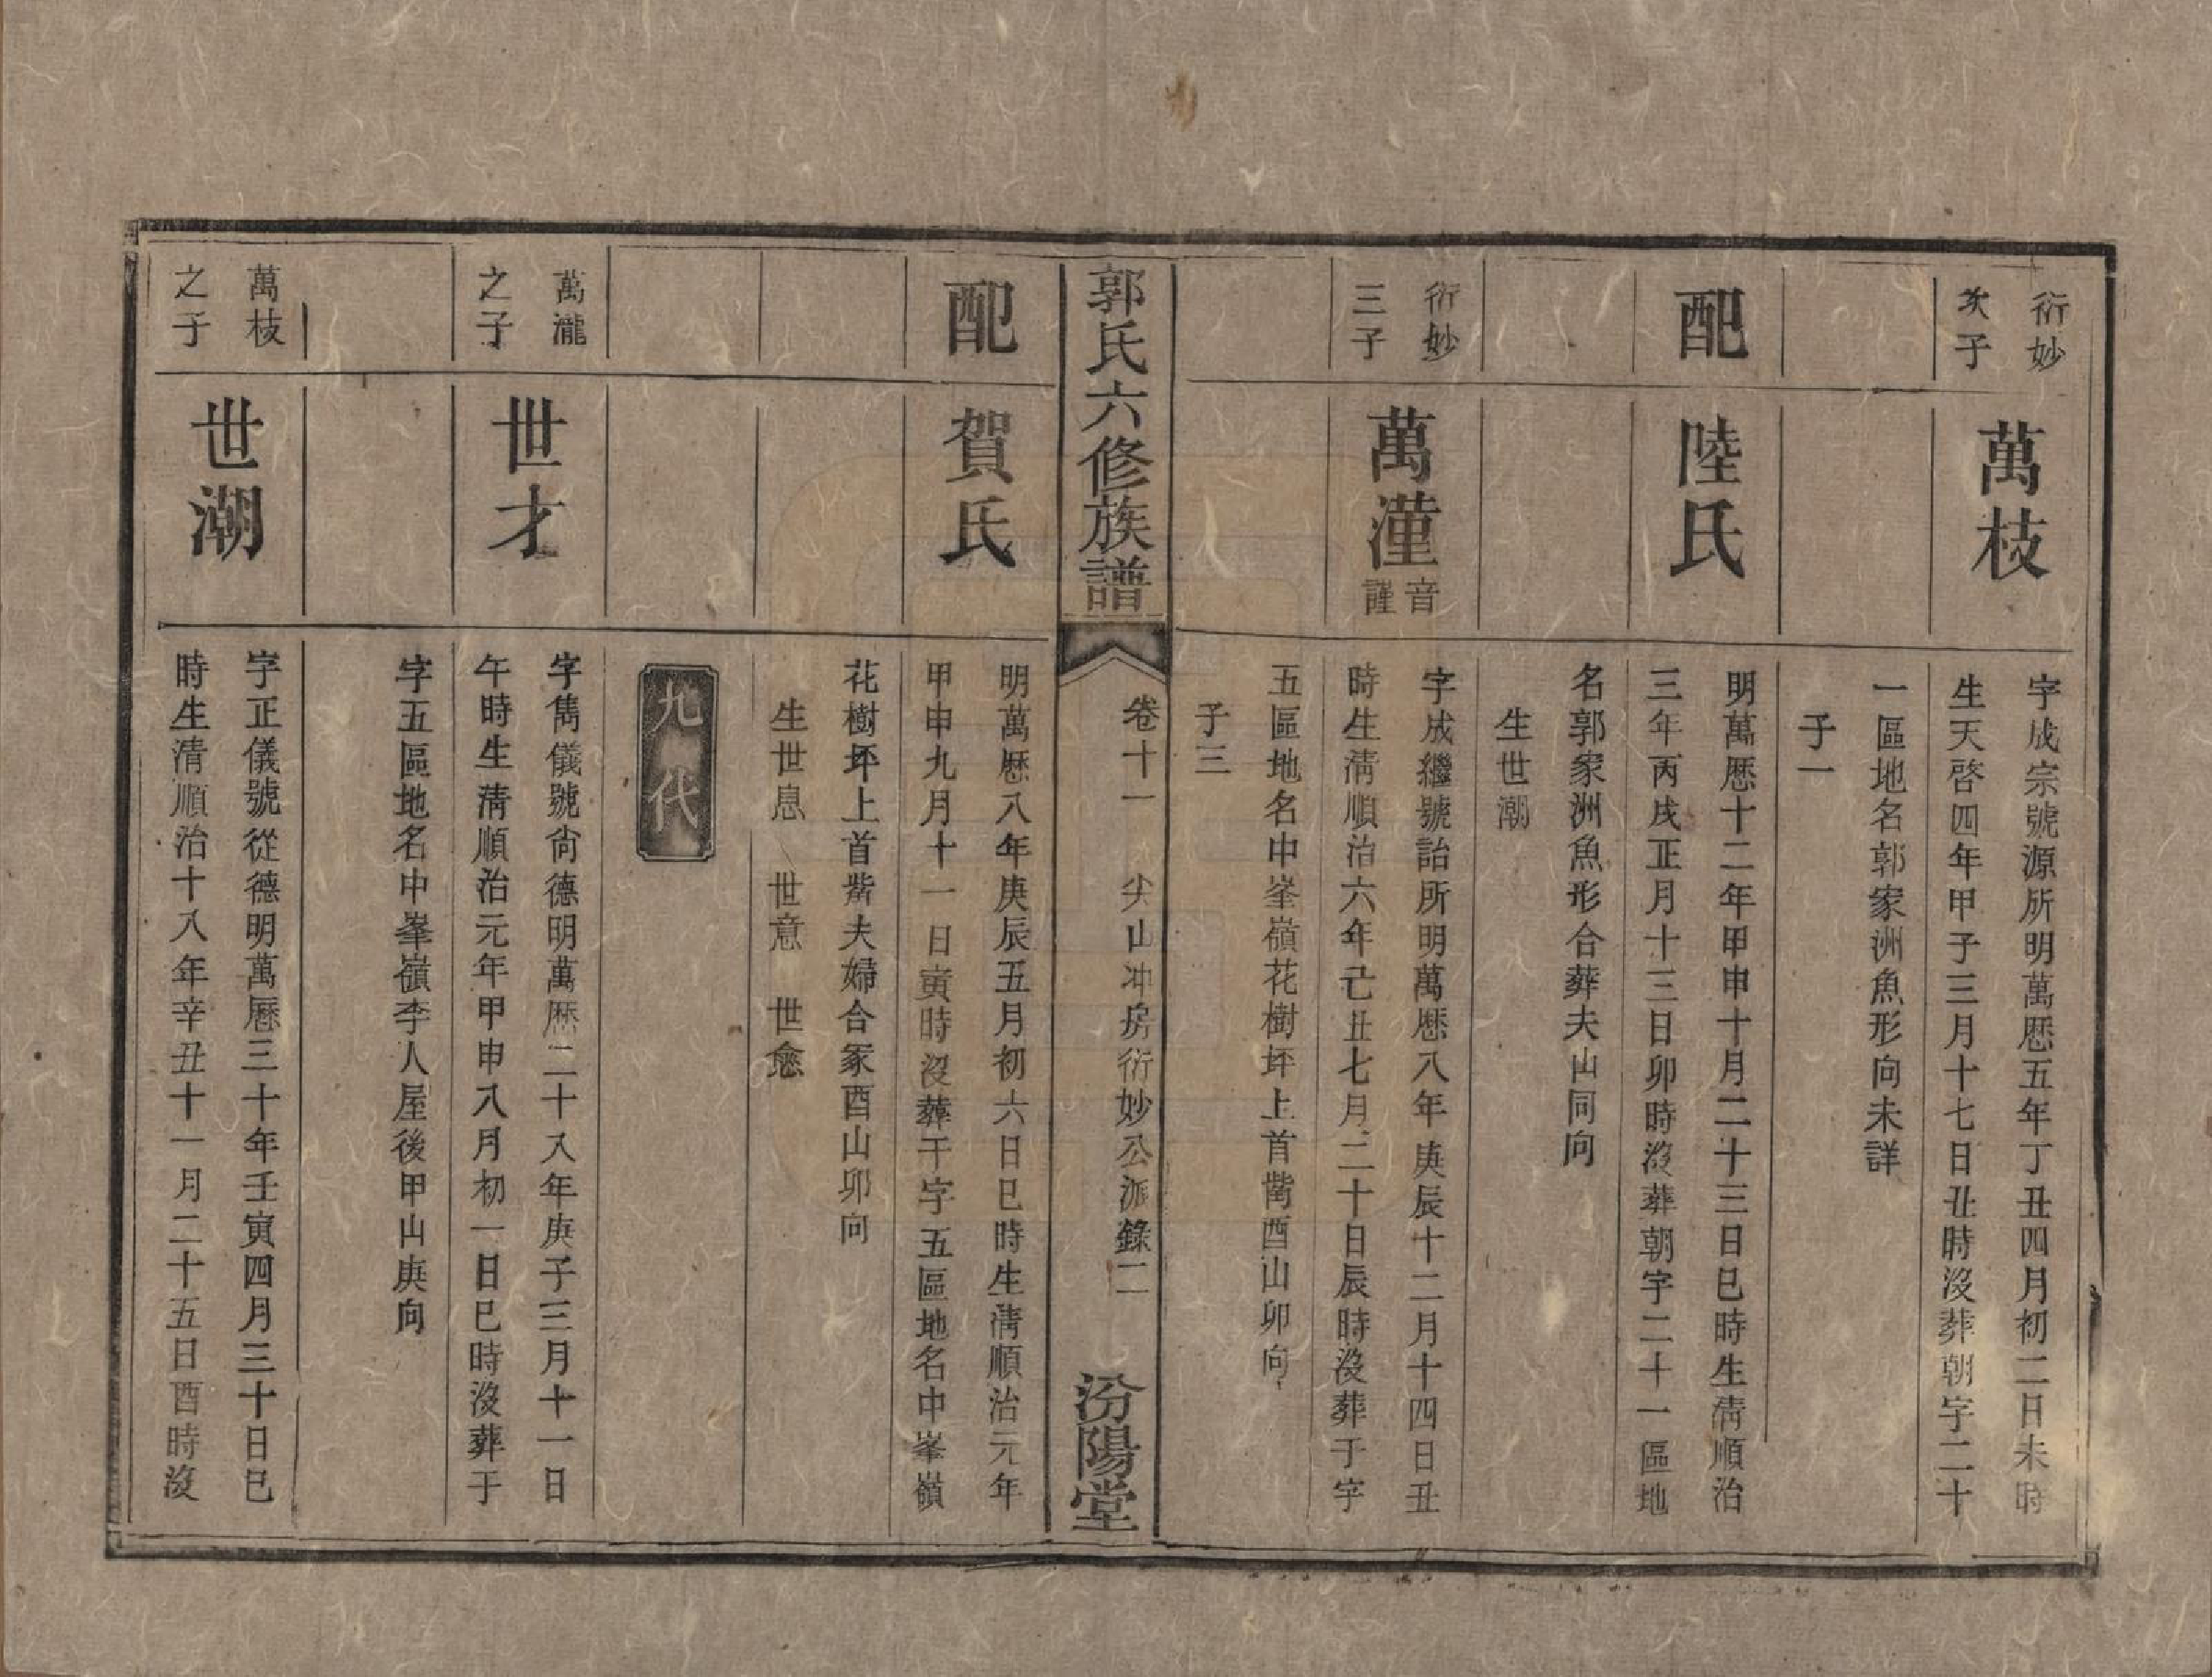 衍妙
次子
萬枝
字成宗號源所明萬厯五年丁丑四月初二日未時
生天啓四年甲子三月十七日丑時沒葬朝字二十
一區地名郭家洲魚形向未詳
子一
配
陸氏
明萬厯十二年甲申十月二十三日巳時生清順治
三年丙戌正月十三日卯時沒葬朝字二十一區地
名郭家洲魚形合葬夫山同向
生世潮
衍妙
三子
萬漌
音
謹
字成繼號詒所明萬厯八年庚辰十二月十四日丑
時生清順治六年己丑七月二十日辰時沒葬于字
五區地名中峯嶺花樹坪上首觜酉山卯向
子三
郭氏六修族譜
卷十一 尖山冲房衍妙公派錄二
汾陽堂
配
賀氏
明萬厯八年庚辰五月初六日巳時生清順治元年
甲申九月十一日寅時沒葬于字五區地名中峯嶺
花樹坪上首觜夫婦合冢酉山卯向
生世息 世意 世愈
九代
萬瀧
之子
世才
字雋儀號尙德明萬厯二十八年庚子三月十一日
午時生清順治元年甲申八月初一日巳時沒葬于
字五區地名中峯嶺李人屋後甲山庚向
萬枝
之子
世潮
字正儀號從德明萬厯三十年壬寅四月三十日巳
時生清順治十八年辛丑十一月二十五日酉時沒